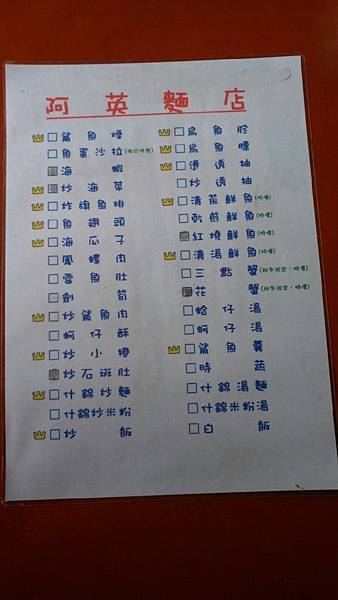 阿英麵店
鯊魚煙
魚蛋沙拉
海蝦
炒海菜
炸旗魚排
魚翅頭
海瓜子
鳳螺肉
雪魚肚
劍筍
炒鯊魚肉
蚵仔酥
炒小捲
炒石斑肚
什錦炒麵
什錦炒米粉
炒飯
烏魚胗
烏魚膘
燙透抽
炒透抽
清蒸鮮魚(時價)
乾煎鮮魚(時價)
紅燒鮮魚(時價)
清湯鮮魚(時價)
三點蟹(秋冬限定,時價)
花蟹(秋冬限定,時價)
蛤仔湯
蚵仔湯
鯊魚羹
時蔬
什錦湯麵
什錦米粉湯
白飯